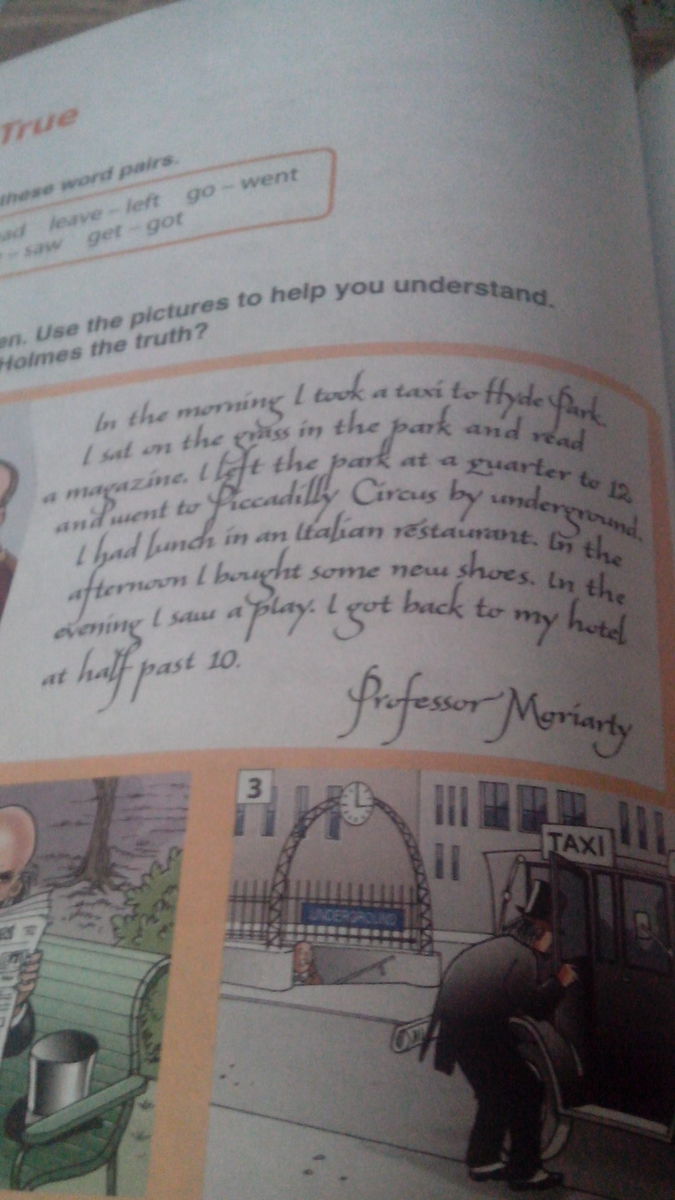 True
these word pairs.
leave – left go – went
– saw get – got
Use the pictures to help you understand.
Holmes the truth?
In the morning I took a taxi to Hyde Park.
I sat on the grass in the park and read
a magazine. I left the park at a quarter to 12
and went to Piccadilly Circus by underground.
I had lunch in an Italian restaurant. In the
afternoon I bought some new shoes. In the
evening I saw a play. I got back to my hotel
at half past 10.
Professor Moriarty
3
TAXI
UNDERGROUND